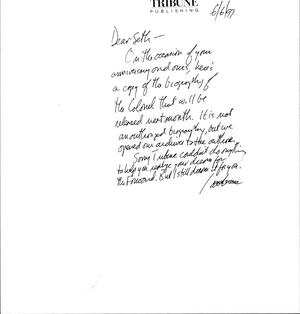 TRIBUNE
PUBLISHING
6/6/97
Dear Seth —
On the occasion of your
anniversary and ours, here's
a copy of the biography of
the Colonel that will be
released next month. It is not
an authorized biography, but we
opened our archives to the author.
Sorry Tribune couldn't do anything
to help you realize your dream for
the Forward. But I still dream it for you.